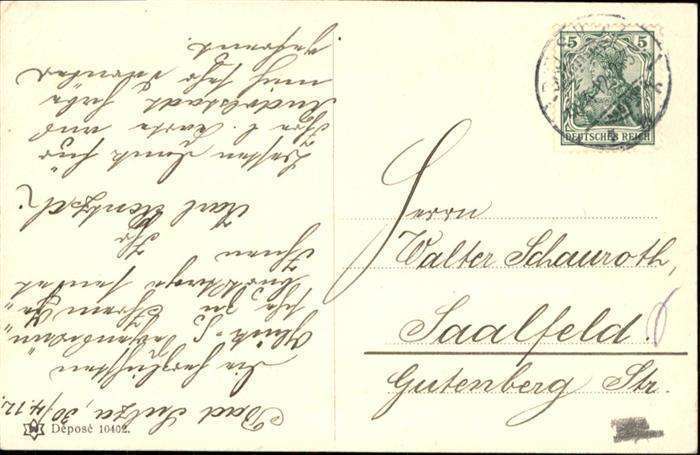 Bad Sulza, 30/4.12.
Die herzlichsten
Glück- & Segenswün-
sche zu Ihrem Ge-
burtstage sendet
Ihnen
Ihr
Karl
Besten Dank für
Ihre l. Karte und
Rudolstadt habe
mich sehr
gefreut.
Déposé 10402.
5 5
DEUTSCHES REICH
Herrn
Walter Schauroth,
Saalfeld.
Gutenberg Str.